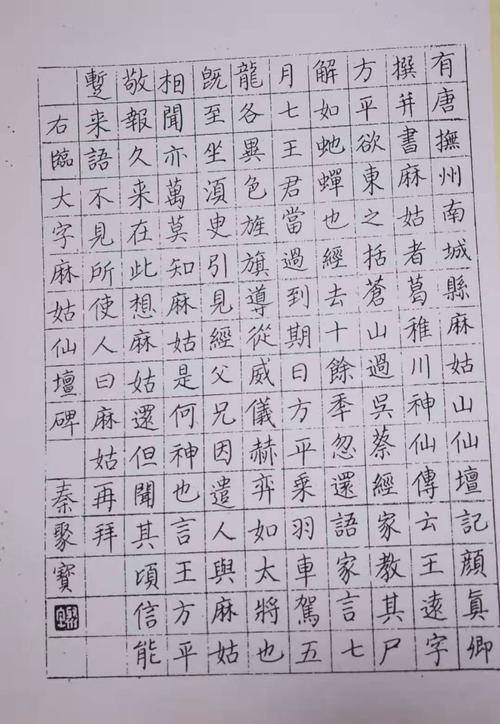 有唐撫州南城縣麻姑山仙壇記顏眞卿
撰并書麻姑者葛稚川神仙傳云王遠字
方平欲東之括蒼山過吳蔡經家教其尸
解如虵蟬也經去十餘秊忽還語家言七
月七王君當過到期日方平乗羽車駕五
龍各異色旌旗導從威儀赫弈如太將也
既至坐湏臾引見經父兄因遣人與麻姑
相聞亦萬莫知麻姑是何神也言王方平
敬報久来在此想麻姑還但聞其頃信能
蹔来語不見所使人曰麻姑再拜
右臨大字麻姑仙壇碑 秦聚寶